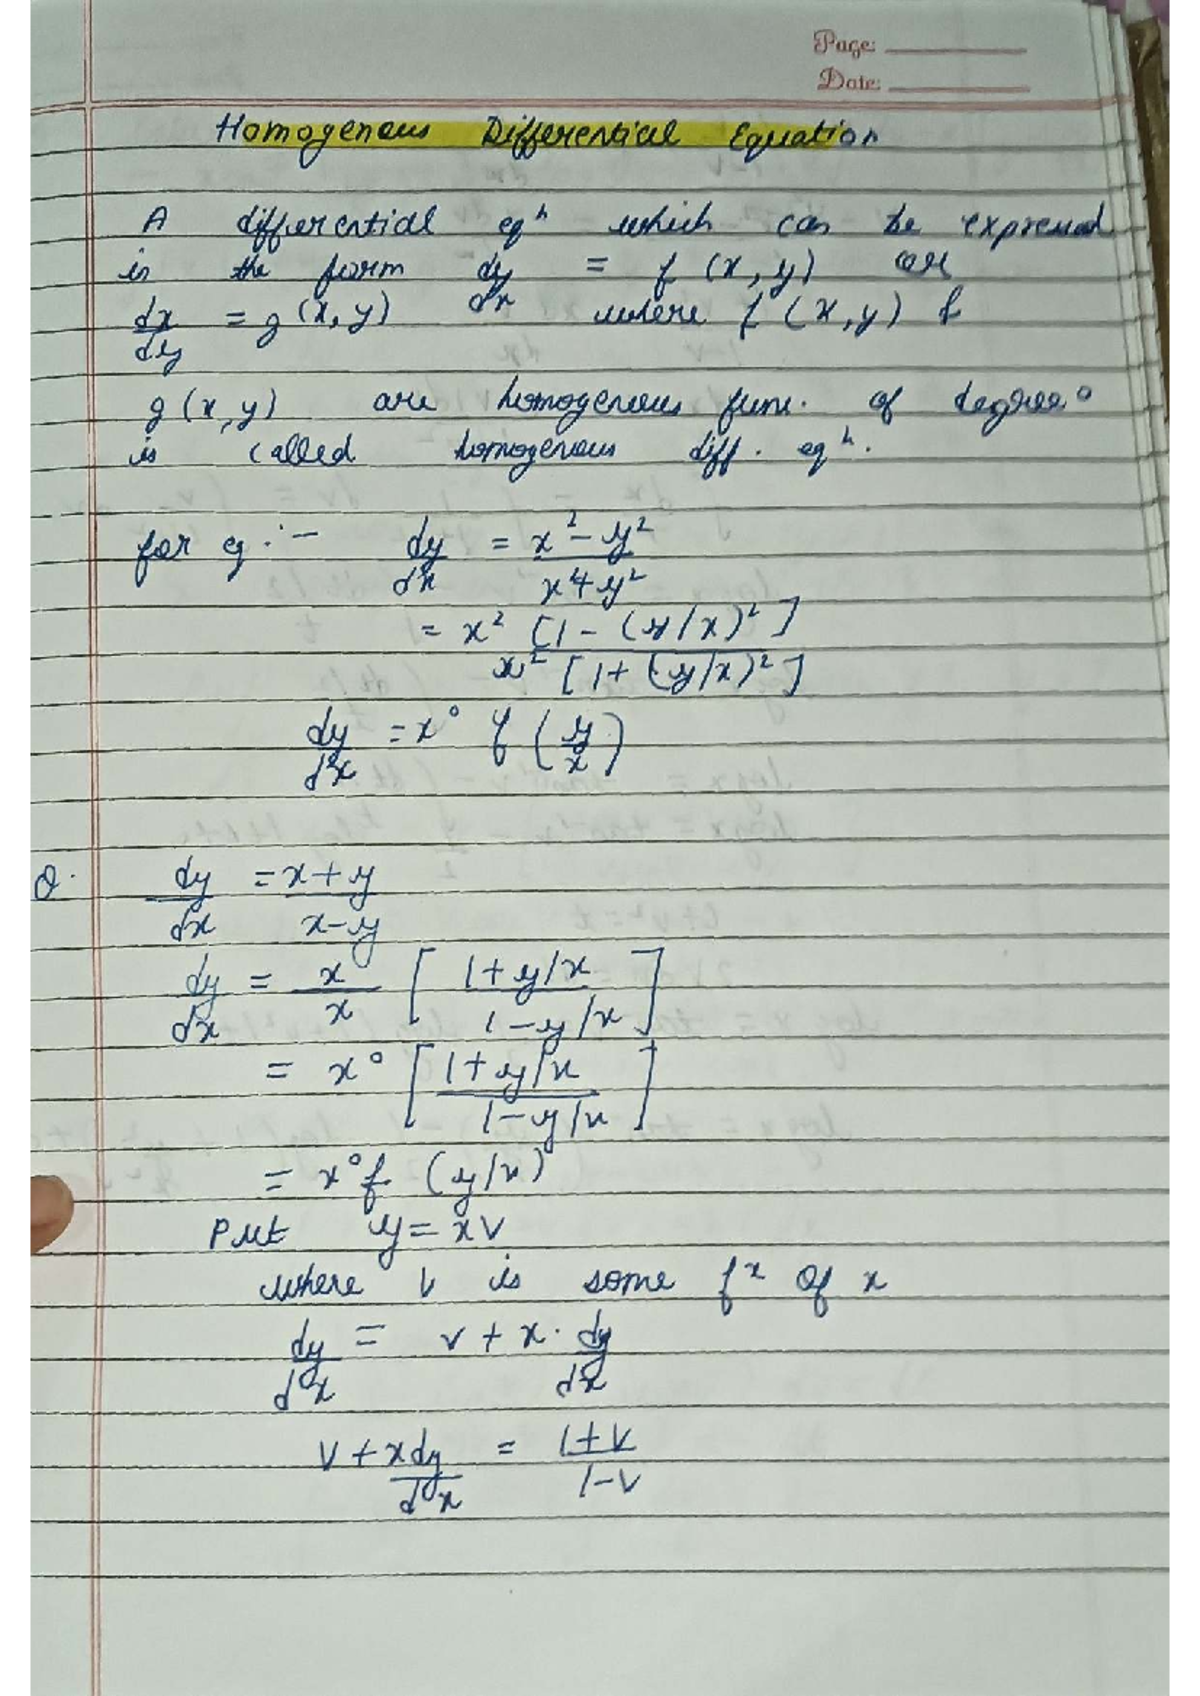 Page:
Date:
Homogenous Differential Equation
A differential eqⁿ which can be expressed
in the form dy/dx = f(x,y) or
dx/dy = g(x,y) where f(x,y) &
g(x,y) are homogenous func. of degree 0
is called homogenous diff. eqⁿ.
for eg:- dy/dx = x²-y²/x²+y²
= x² [1-(y/x)²]/x² [1+(y/x)²]
dy/dx = x⁰ f(y/x)
Q. dy/dx = x+y/x-y
dy/dx = x/x [1+y/x / 1-y/x]
= x⁰ [1+y/x / 1-y/x]
= x⁰f (y/x)
Put y = xv
where v is some fˣ of x
dy/dx = v + x. dy/dx
v + xdy/dx = 1+v/1-v